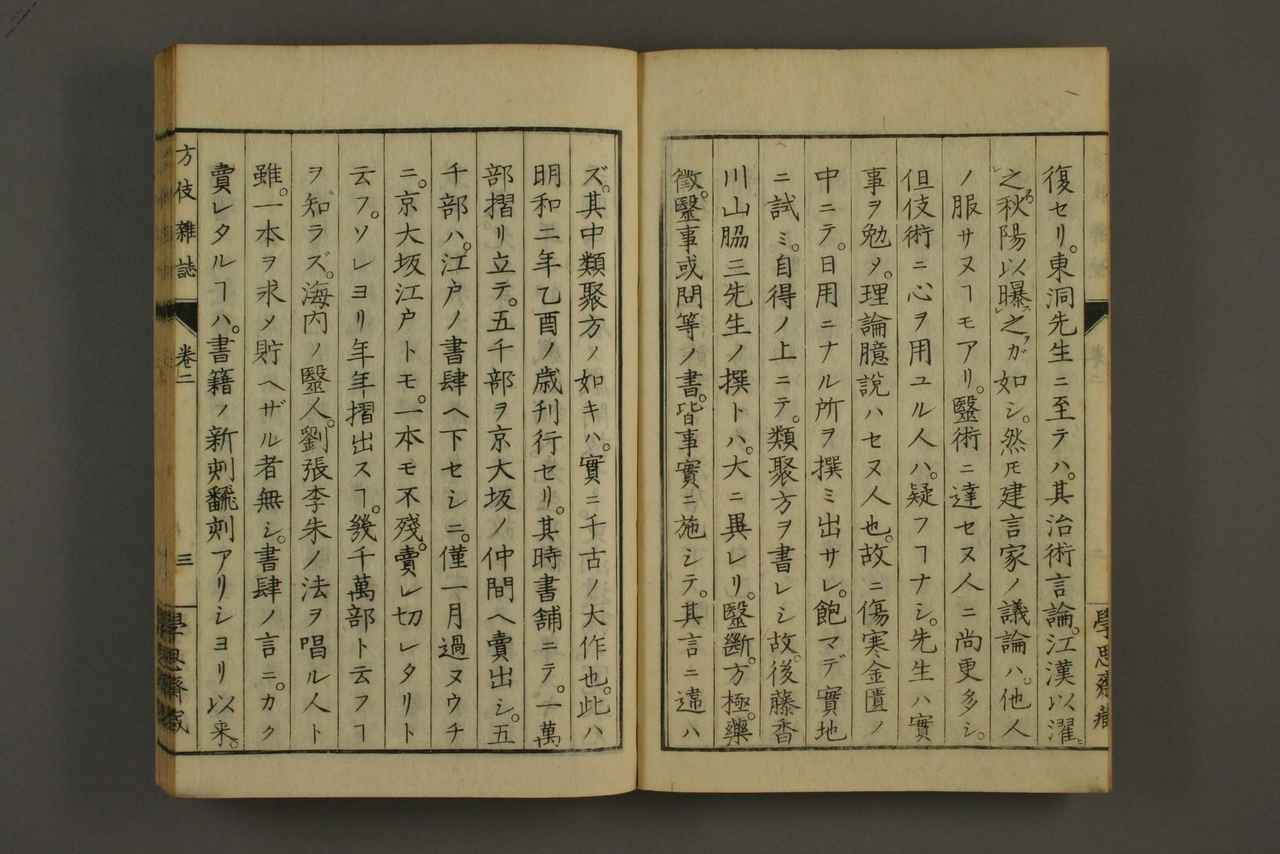 復セリ。東洞先生ニ至テハ。其治術言論。江漢以濯
之秋陽以曝之ガ如シ。然ㇳモ建言家ノ議論ハ。他人
ノ服サヌヿモアリ。醫術ニ達セヌ人ニ尚更多シ。
但伎術ニ心ヲ用ユル人ハ。疑フヿナシ。先生ハ實
事ヲ勉メ。理論臆説ハセヌ人也。故ニ傷寒金匱ノ
中ニテ。日用ニナル所ヲ撰ミ出サレ。飽マデ實地
ニ試ミ。自得ノ上ニテ。類聚方ヲ書レシ故。後藤香
川山脇三先生ノ撰トハ。大ニ異レリ。醫斷。方極。藥
徵。醫事或問等ノ書。皆事實ニ施シテ。其言ニ違ハ
學思齋藏
ズ。其中類聚方ノ如キハ。實ニ千古ノ大作也。此ハ
明和二年乙酉ノ歳刊行セリ。其時書舗ニテ。一萬
部摺リ立テ。五千部ヲ京大坂ノ仲間ヘ賣出シ。五
千部ハ。江戸ノ書肆ヘ下セシニ。僅一月過ヌウチ
ニ。京大坂江戸トモ。一本モ不殘。賣レ切レタリト
云フ。ソレヨリ年年摺出スヿ。幾千萬部ト云フヿ
ヲ知ラズ。海内ノ醫人。劉張李朱ノ法ヲ唱ル人ト
雖。一本ヲ求メ貯ヘザル者無シ。書肆ノ言ニ。カク
賣レタルヿハ。書籍ノ新刺飜刺アリシヨリ以来。
方伎雜誌 卷二 三 學思齋藏